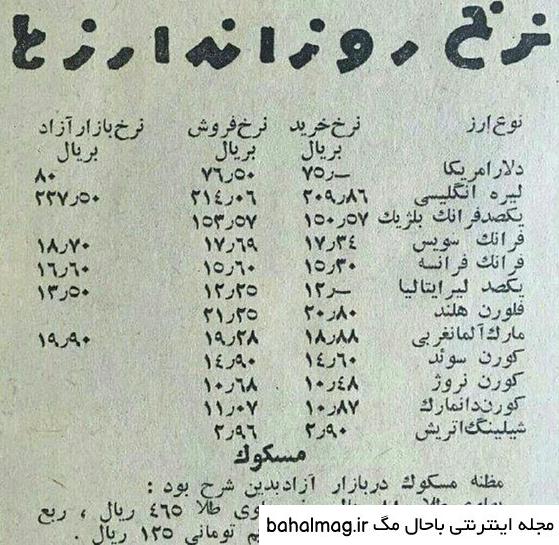 نرخ روزانه ارزها
نوع ارز نرخ خرید نرخ فروش نرخ بازار آزاد
بریال بریال بریال
دلار امریکا ۷۵٫ــ ۷۶٫۵۰ ۸۰
لیره انگلیسی ۲۰۹٫۸۶ ۲۱۴٫۰۶ ۲۲۷٫۵۰
یکصد فرانك بلژیك ۱۵۰٫۵۷ ۱۵۳٫۵۷
فرانك سویس ۱۷٫۳۴ ۱۷٫۶۹ ۱۸٫۷۰
فرانك فرانسه ۱۵٫۳۰ ۱۵٫۶۰ ۱۶٫۶۰
یکصد لیر ایتالیا ۱۲٫ــ ۱۲٫۲۵ ۱۳٫۵۰
فلورن هلند ۲۰٫۸۰ ۲۱٫۲۵
مارك آلمانغربی ۱۸٫۸۸ ۱۹٫۲۸ ۱۹٫۹۰
کورن سوئد ۱۴٫۶۰ ۱۴٫۹۰
کورن نروژ ۱۰٫۴۸ ۱۰٫۶۸
کورن دانمارك ۱۰٫۸۷ ۱۱٫۰۷
شیلینگ اتریش ۲٫۹۰ ۲٫۹۶
مسکوك
مظنه مسکوك در بازار آزاد بدین شرح بود :
طلا ۴۶۵ ریال ، ربع
تومانی ۱۲۵ ریال .
مجله اینترنتی باحال مگ bahalmag.ir